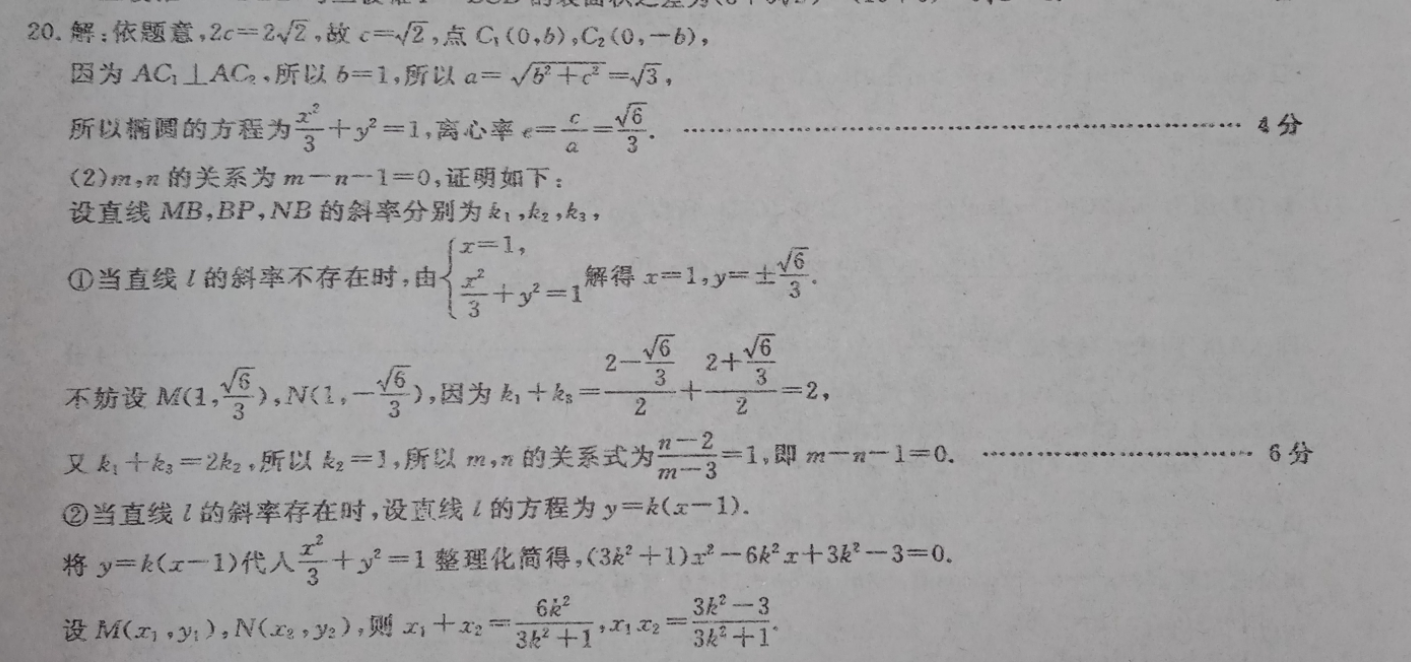 20. 解:依题意,2c=2√2,故 c=√2,点 C₁(0,b),C₂(0,-b),
因为 AC₁⊥AC₂,所以 b=1,所以 a=√(b²+c²)=√3,
所以椭圆的方程为x²/3+y²=1,离心率 e=c/a=√6/3. ………………………… 4分
(2)m,n 的关系为 m-n-1=0,证明如下:
设直线 MB,BP,NB 的斜率分别为 k₁,k₂,k₃,
①当直线 l 的斜率不存在时,由{x=1, x²/3+y²=1 解得 x=1,y=±√6/3.
不妨设 M(1,√6/3),N(1,-√6/3),因为 k₁+k₃=(2-√6/3)/2+(2+√6/3)/2=2,
又 k₁+k₃=2k₂,所以 k₂=1,所以 m,n 的关系式为(n-2)/(m-3)=1,即 m-n-1=0. ………………………… 6分
②当直线 l 的斜率存在时,设直线 l 的方程为 y=k(x-1).
将 y=k(x-1)代入x²/3+y²=1 整理化简得,(3k²+1)x²-6k²x+3k²-3=0.
设 M(x₁,y₁),N(x₂,y₂),则 x₁+x₂=6k²/(3k²+1),x₁x₂=(3k²-3)/(3k²+1).